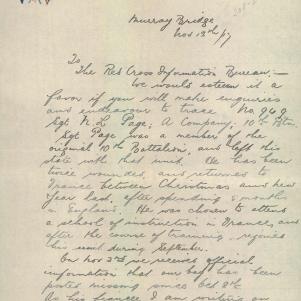 Murray Bridge
Nov 13th /17
To
The Red Cross Information Bureau,—
We would esteem it a
favor if you will make enquiries
and endeavour to trace No 949
Sgt N. L. Page; A Company; 10th Btn
Sgt Page was a member of the
original 10th Battalion, and left this
state with that unit. He has been
twice wounded, and returned to
France between Christmas and New
Year last, after spending 5 months
in England. He was chosen to attend
a school of instruction in France, and
after the course of training rejoined
his unit during September.
On Nov 3rd we received official
information that our boy has been
posted missing since Oct 8th.
As his fiancee I am writing on